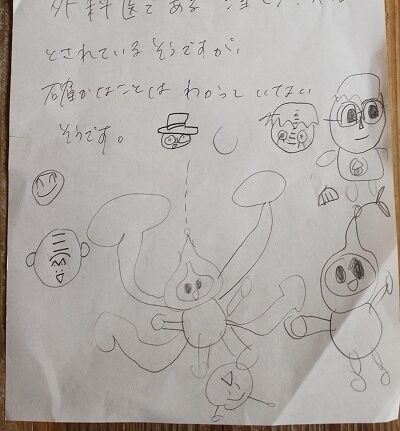 外科医である
とされているそうですが、
確かなことはわかっていてない
そうです。